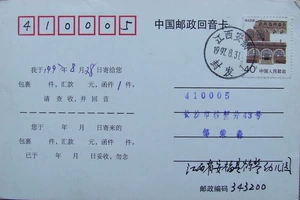 410005
中国邮政回音卡
江西安福
1992.8.31
封发
40分
中国人民邮政
我于1992年8月28日寄给您
包裹 件,汇款 元,函件1件,
请查收,并回音
您于 年 月 日寄来的
包裹 件,汇款 元,函件 件
已于 年 月 日妥收,勿念
410005
长沙市
43号
江西省安福县
幼儿园
邮政编码 343200